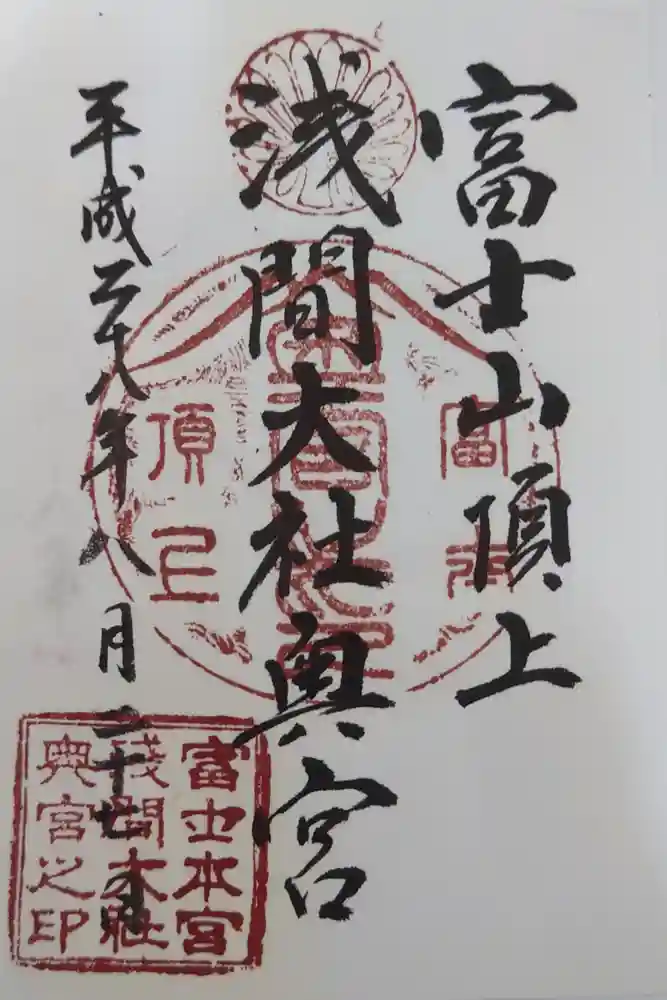 富士山頂上
浅間大社奥宮
平成二十八年八月二十七日
頂上
富士本宮
浅間大社
奥宮之印